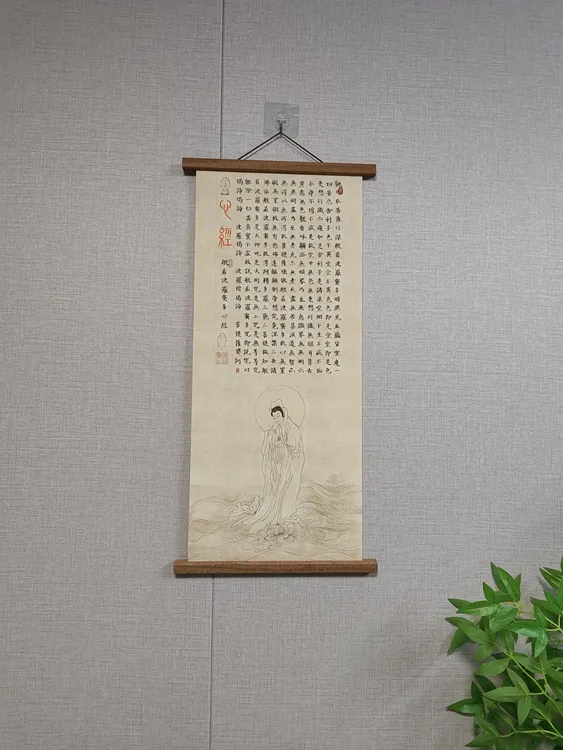 觀自在菩薩行深般若波羅蜜多時照見五蘊皆空度一
切苦厄舍利子色不異空空不異色色即是空空即是色
受想行識亦復如是舍利子是諸法空相不生不滅不垢
不淨不增不減是故空中無色無受想行識無眼耳鼻舌
身意無色聲香味觸法無眼界乃至無意識界無無明亦
無無明盡乃至無老死亦無老死盡無苦集滅道無智亦
無得以無所得故菩提薩埵依般若波羅蜜多故心無罣
礙無罣礙故無有恐怖遠離顛倒夢想究竟涅槃三世諸
佛依般若波羅蜜多故得阿耨多羅三藐三菩提故知般
若波羅蜜多是大神咒是大明咒是無上咒是無等等咒
能除一切苦真實不虛故說般若波羅蜜多咒即說咒曰
揭諦揭諦 波羅揭諦 波羅僧揭諦 菩提薩婆訶
心經
般若波羅蜜多心經